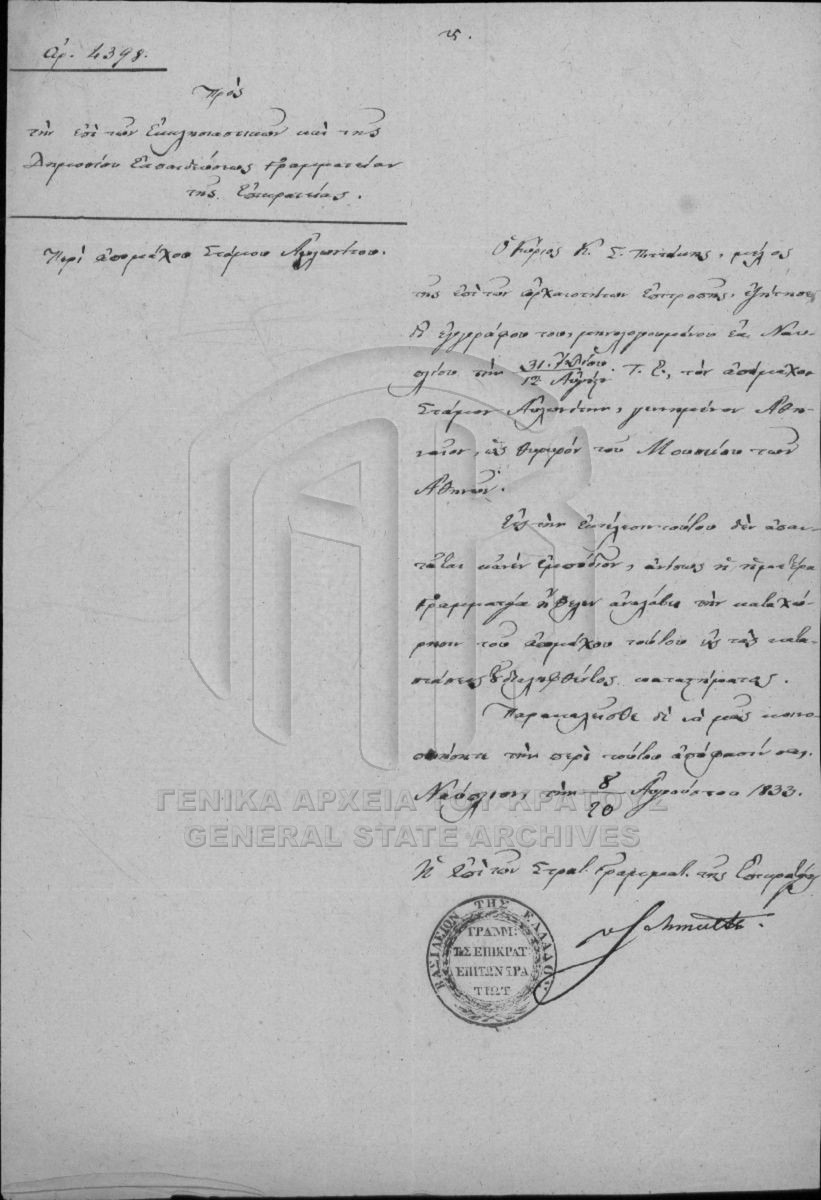 Ἀρ. 4398.
Πρὸς
τὴν ἐπὶ τῶν Ἐκκλησιαστικῶν καὶ τῆς
Δημοσίου Ἐκπαιδεύσεως Γραμματείαν
τῆς Ἐπικρατείας.
Περὶ ἀπομάχου Στάμου
Ὁ Κύριος Κ. Σ. Πιττάκης, μέλος
τῆς ἐπὶ τῶν ἀρχαιοτήτων ἐπιτροπῆς, ἐζήτησε
δι' ἐγγράφου του, μηνολογουμένου ἐκ Ναυ-
πλίου τὴν 31. Ἰουλίου / 12 Αὐγούς. τ. ἔ., τὸν ἀπόμαχον
Στάμον γεννημένον Ἀθη-
ναῖον, ὡς θυρωρὸν τοῦ Μουσείου τῶν
Ἀθηνῶν.
Εἰς τὴν ἐκτέλεσιν τούτου δὲν ἀπαν-
τᾶται κανὲν ἐμπόδιον, ἀνίσως ἡ ἡμετέρα
Γραμματεία ἤθελεν ἀναλάβει τὴν καταχώ-
ρησιν τοῦ ἀπομάχου τούτου εἰς τὰς κατα-
στάσεις τοῦ διαληφθέντος καταστήματος.
Παρακαλεῖσθε δὲ νὰ μᾶς κοινο-
ποιήσητε τὴν περὶ τούτου ἀπόφασίν σας.
Ναύπλιον, τὴν 8/20 Αὐγούστου 1833.
Ἡ ἐπὶ τῶν Στρατ. Γραμματ. τῆς Ἐπικρατείας
Schmaltz.
ΒΑΣΙΛΕΙΟΝ ΤΗΣ ΕΛΛΑΔΟΣ
ΓΡΑΜΜ:
ΤΗΣ ΕΠΙΚΡΑΤ
ΕΠΙ ΤΩΝ ΣΤΡΑ
ΤΙΩΤ
ΓΕΝΙΚΑ ΑΡΧΕΙΑ ΤΟΥ ΚΡΑΤΟΥΣ
GENERAL STATE ARCHIVES